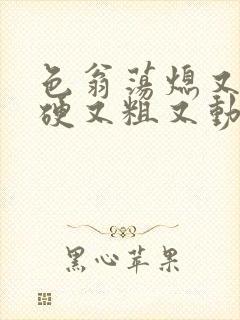 色翁荡熄又
硬又粗又動
黑心苹果